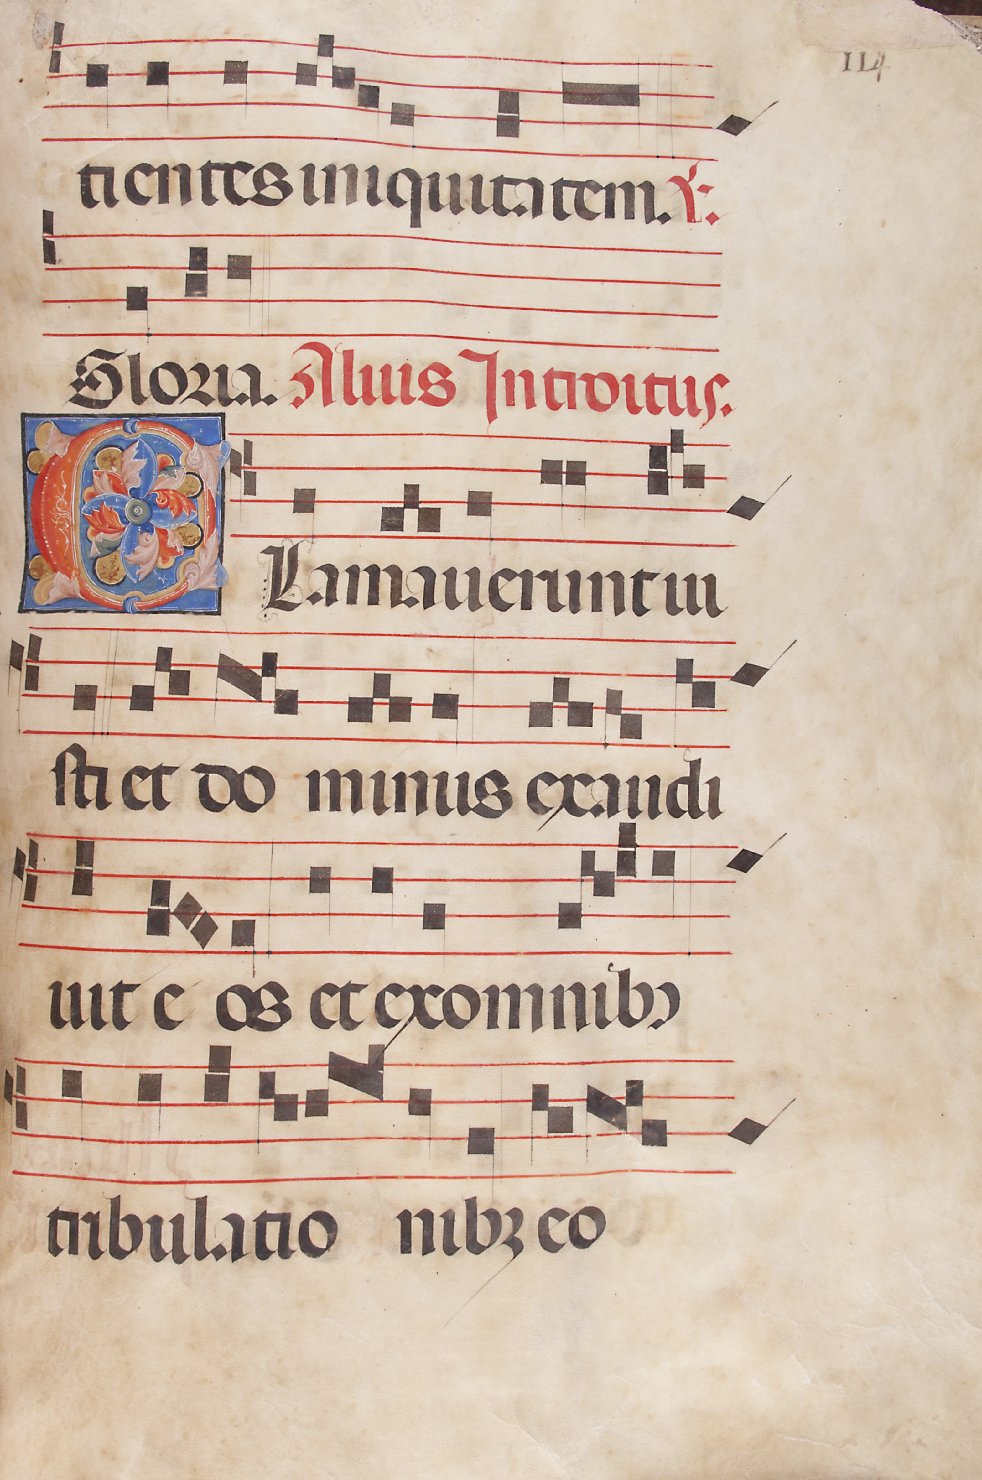 114
tientes iniquitatem. ℣.
Gloria. Alius Introitus.
Clamauerunt iu
sti et do minus exaudi
uit e os et ex omnibꝰ
tribulatio nibꝫ eo